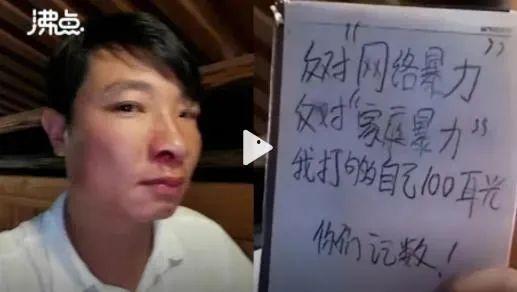 沸点
反对“网络暴力”
反对“家庭暴力”
我打够自己100耳光
你们记数！